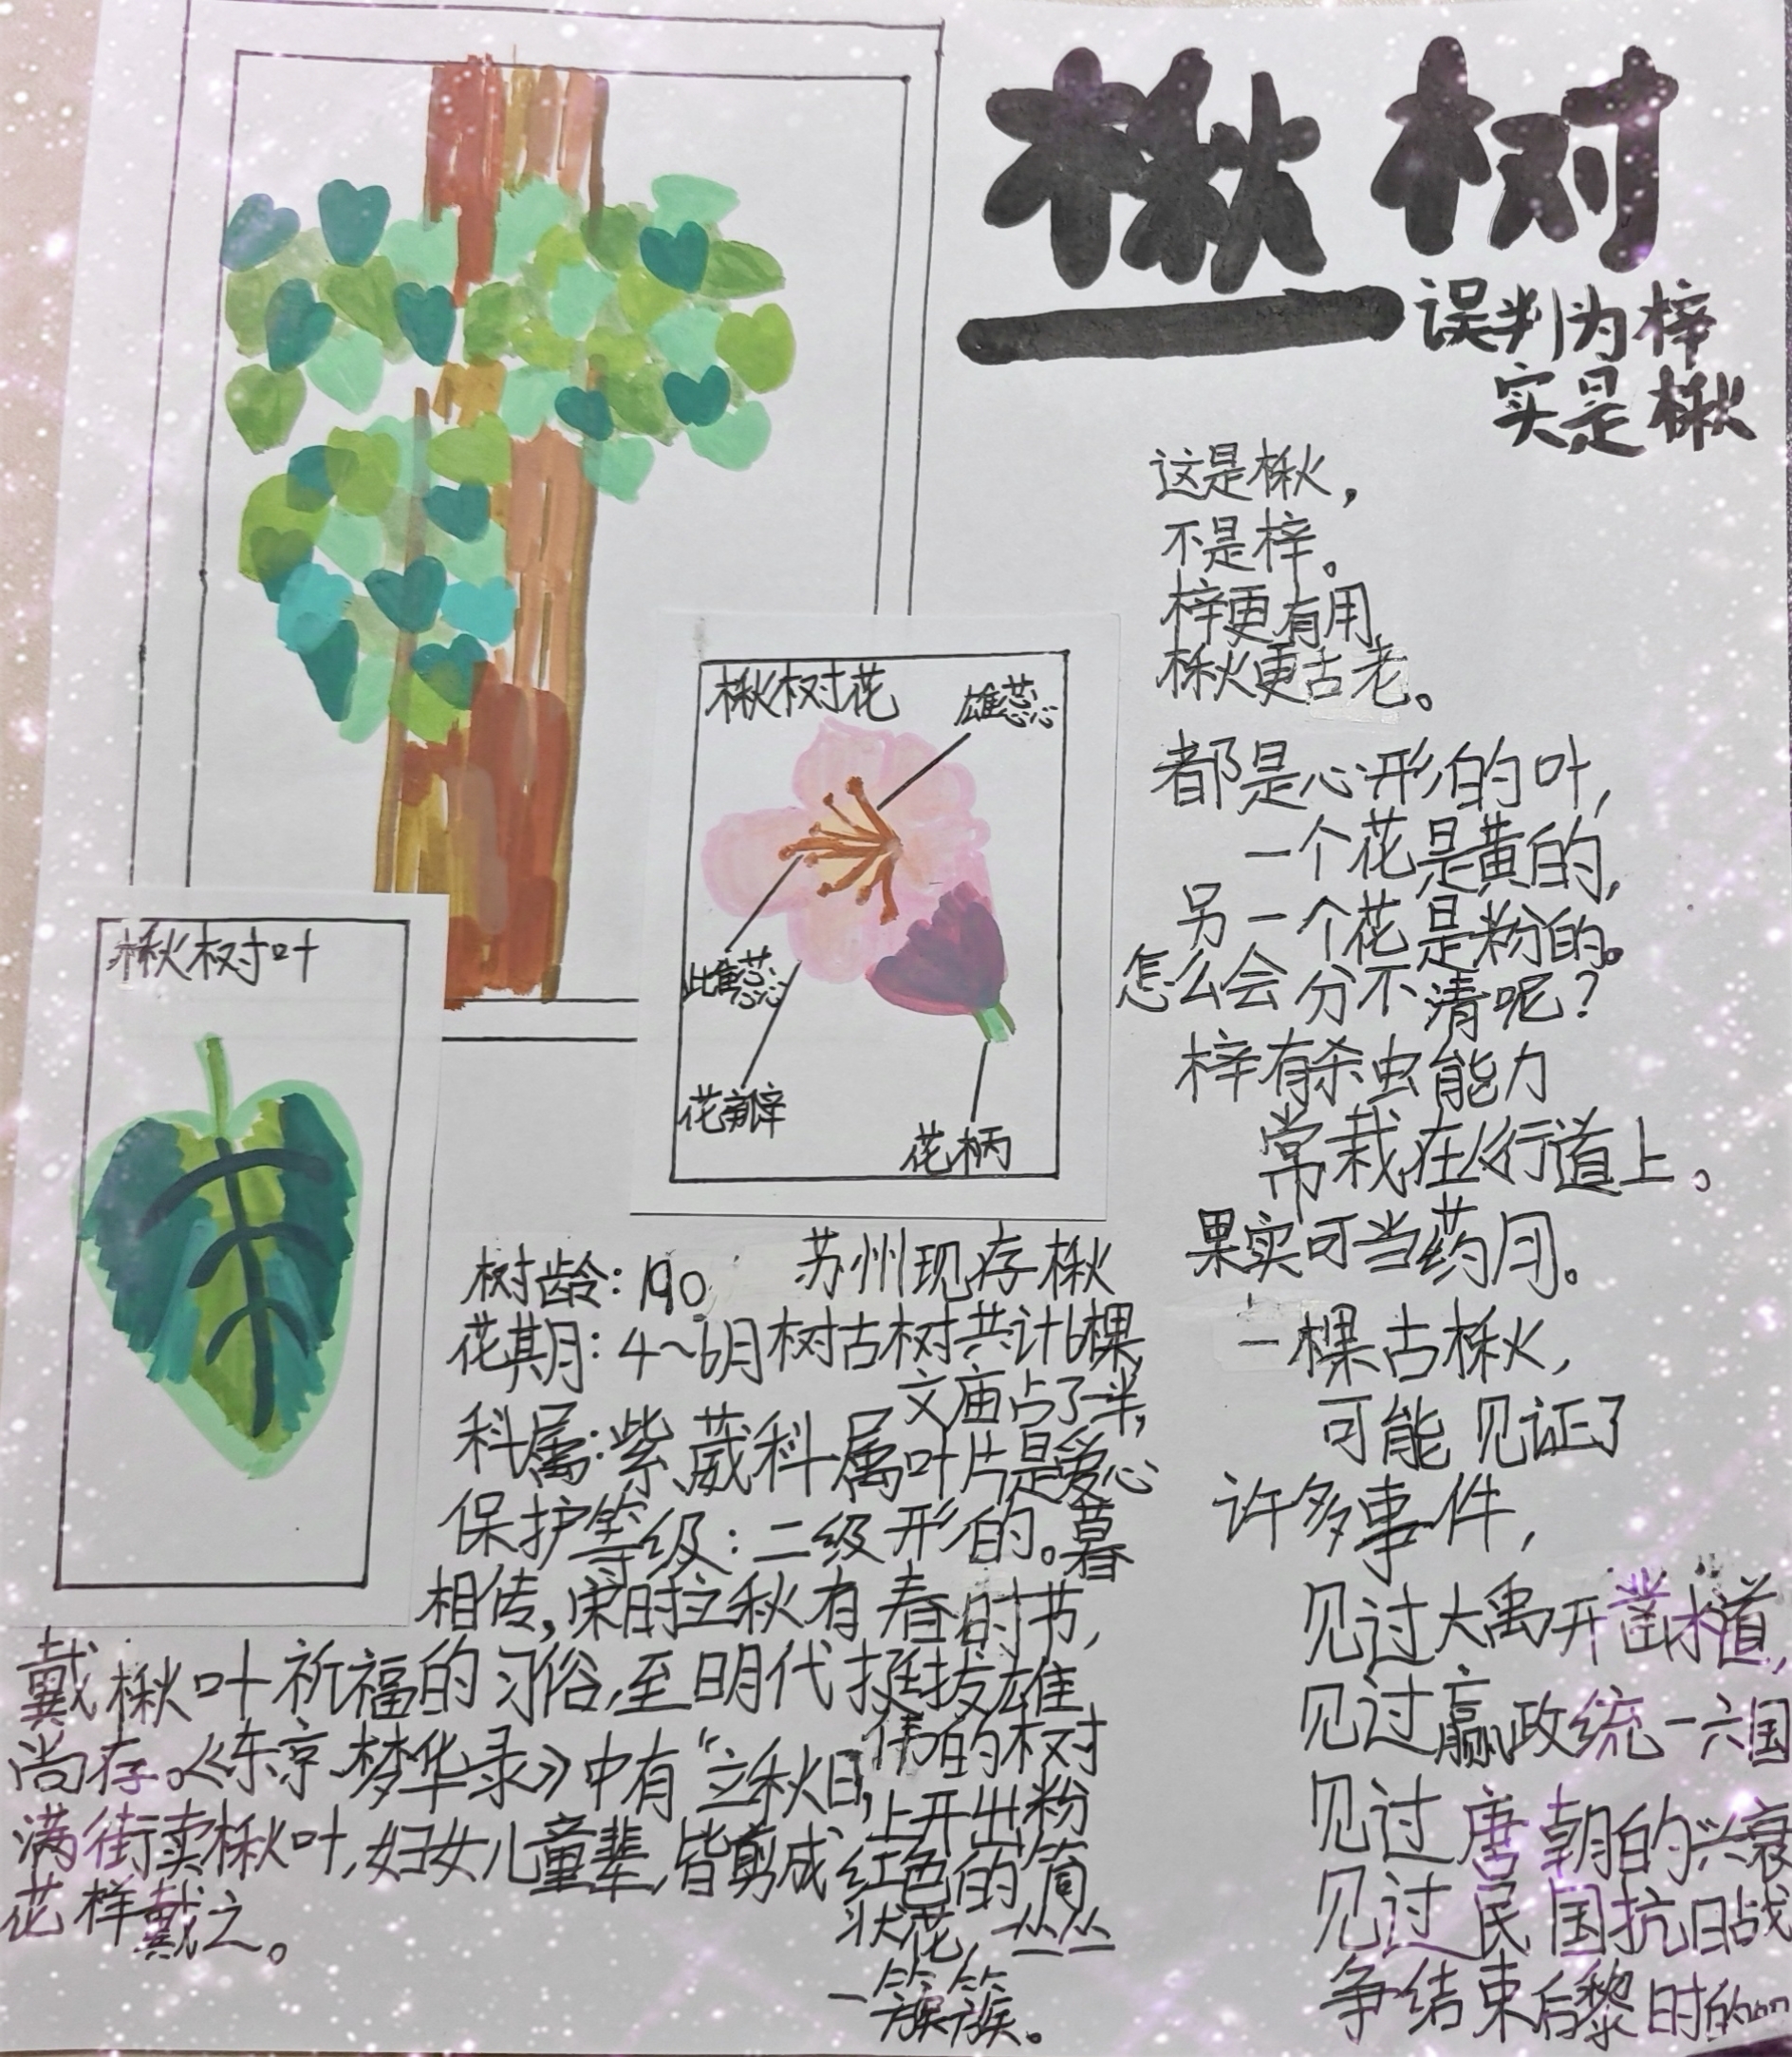 楸树
误判为梓
实是楸
这是楸，
不是梓。
梓更有用
楸更古老。
都是心形的叶，
一个花是黄的，
另一个花是粉的。
怎么会分不清呢？
梓有杀虫能力
常栽在人行道上。
果实可当药用。
一棵古楸，
可能见证了
许多事件，
见过大禹开凿水道，
见过嬴政统一六国
见过唐朝的兴衰
见过民国抗日战
争结束后黎明时的
楸树花
雄蕊
雌蕊
花瓣
花柄
楸树叶
树龄：190
花期：4~6月
科属：紫葳科属
保护等级：二级
相传，宋时立秋有
戴楸叶祈福的习俗，至明代
尚存。《东京梦华录》中有“立秋日，
满街卖楸叶，妇女儿童辈，皆剪成
花样戴之。
苏州现存楸
树古树共计6棵，
文庙占了一半，
叶片是爱心
形的。暮
春时节，
挺拔雄
伟的树
上开出粉
红色的筒
状花，一丛丛
一簇簇。